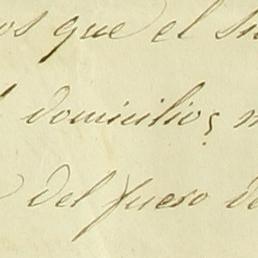 os que el su
domicilio; n
del fuero de